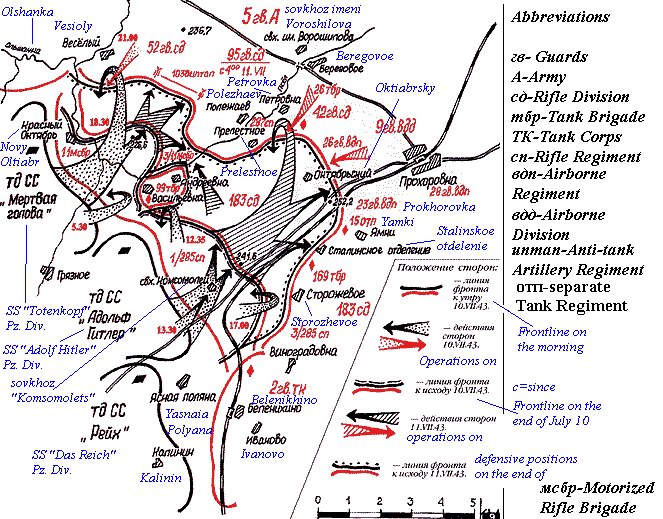 Olshanka
Vesioly
Ольшанка
Весёлый
21.00
52гв.сд
236,7
5гв.А
sovkhoz imeni
Voroshilova
свх. им. Ворошилова
95гв.сд
с4⁰⁰ 11.VII.
Beregovoe
Береговое
Petrovka
Polezhaev
Полежаев
Петровка
26тбр
42гв.сд
Oktiabrsky
9гв.вдд
Прелестное
Prelestnoe
26гв.вдп
Красный
Октябрь
18.30
Novy
Oltiabr
11мсбр
99тбр
Андреевка
Васильевка
183сд
Октябрьский
252,2
Прохоровка
28гв.вдп
Prokhorovka
23гв.вдп
15отп
Yamki
Ямки
Stalinskoe
otdelenie
Сталинское отделение
тд СС
„Мертвая
голова"
5.30
Грязное
12.35
1/285сп
241,6
свх. Комсомолец
169тбр
Сторожевое
183сд
Storozhevoe
3/285сп
SS "Totenkopf"
Pz. Div.
тд СС
„Адольф
Гитлер"
SS "Adolf Hitler"
Pz. Div.
13.30
17.00
Виноградовка
sovkhoz
"Komsomolets"
2гв.тк
Belenikhino
Беленихино
тд СС
„Рейх"
Ясная поляна
Yasnaia
Polyana
Иваново
Ivanovo
SS "Das Reich"
Pz. Div.
Калинин
Kalinin
Положение сторон:
— линия
фронта
к утру
10.VII.43.
Frontline on
the morning
— действия
сторон
10.VII.43.
Operations on
— линия фронта
к исходу 10.VII.43.
c=since
Frontline on the
end of July 10
— действия
сторон
11.VII.43.
operations on
— линия фронта
к исходу 11.VII.43.
defensive positions
on the end of
0 1 2 3 4 5
Abbreviations
гв- Guards
А-Army
сд-Rifle Division
тбр-Tank Brigade
ТК-Tank Corps
сп-Rifle Regiment
вдп-Airborne
Regiment
вдд-Airborne
Division
иптап-Anti-tank
Artillery Regiment
отп-separate
Tank Regiment
мсбр-Motorized
Rifle Brigade